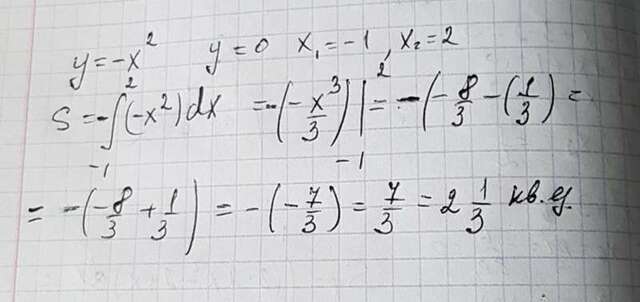 y = -x² y = 0 x₁ = -1, x₂ = 2
S = -∫₋₁² (-x²)dx = -(-x³/3)|₋₁² = -(-8/3 - (1/3) =
= -(-8/3 + 1/3) = -(-7/3) = 7/3 = 2 1/3 кв.ед.